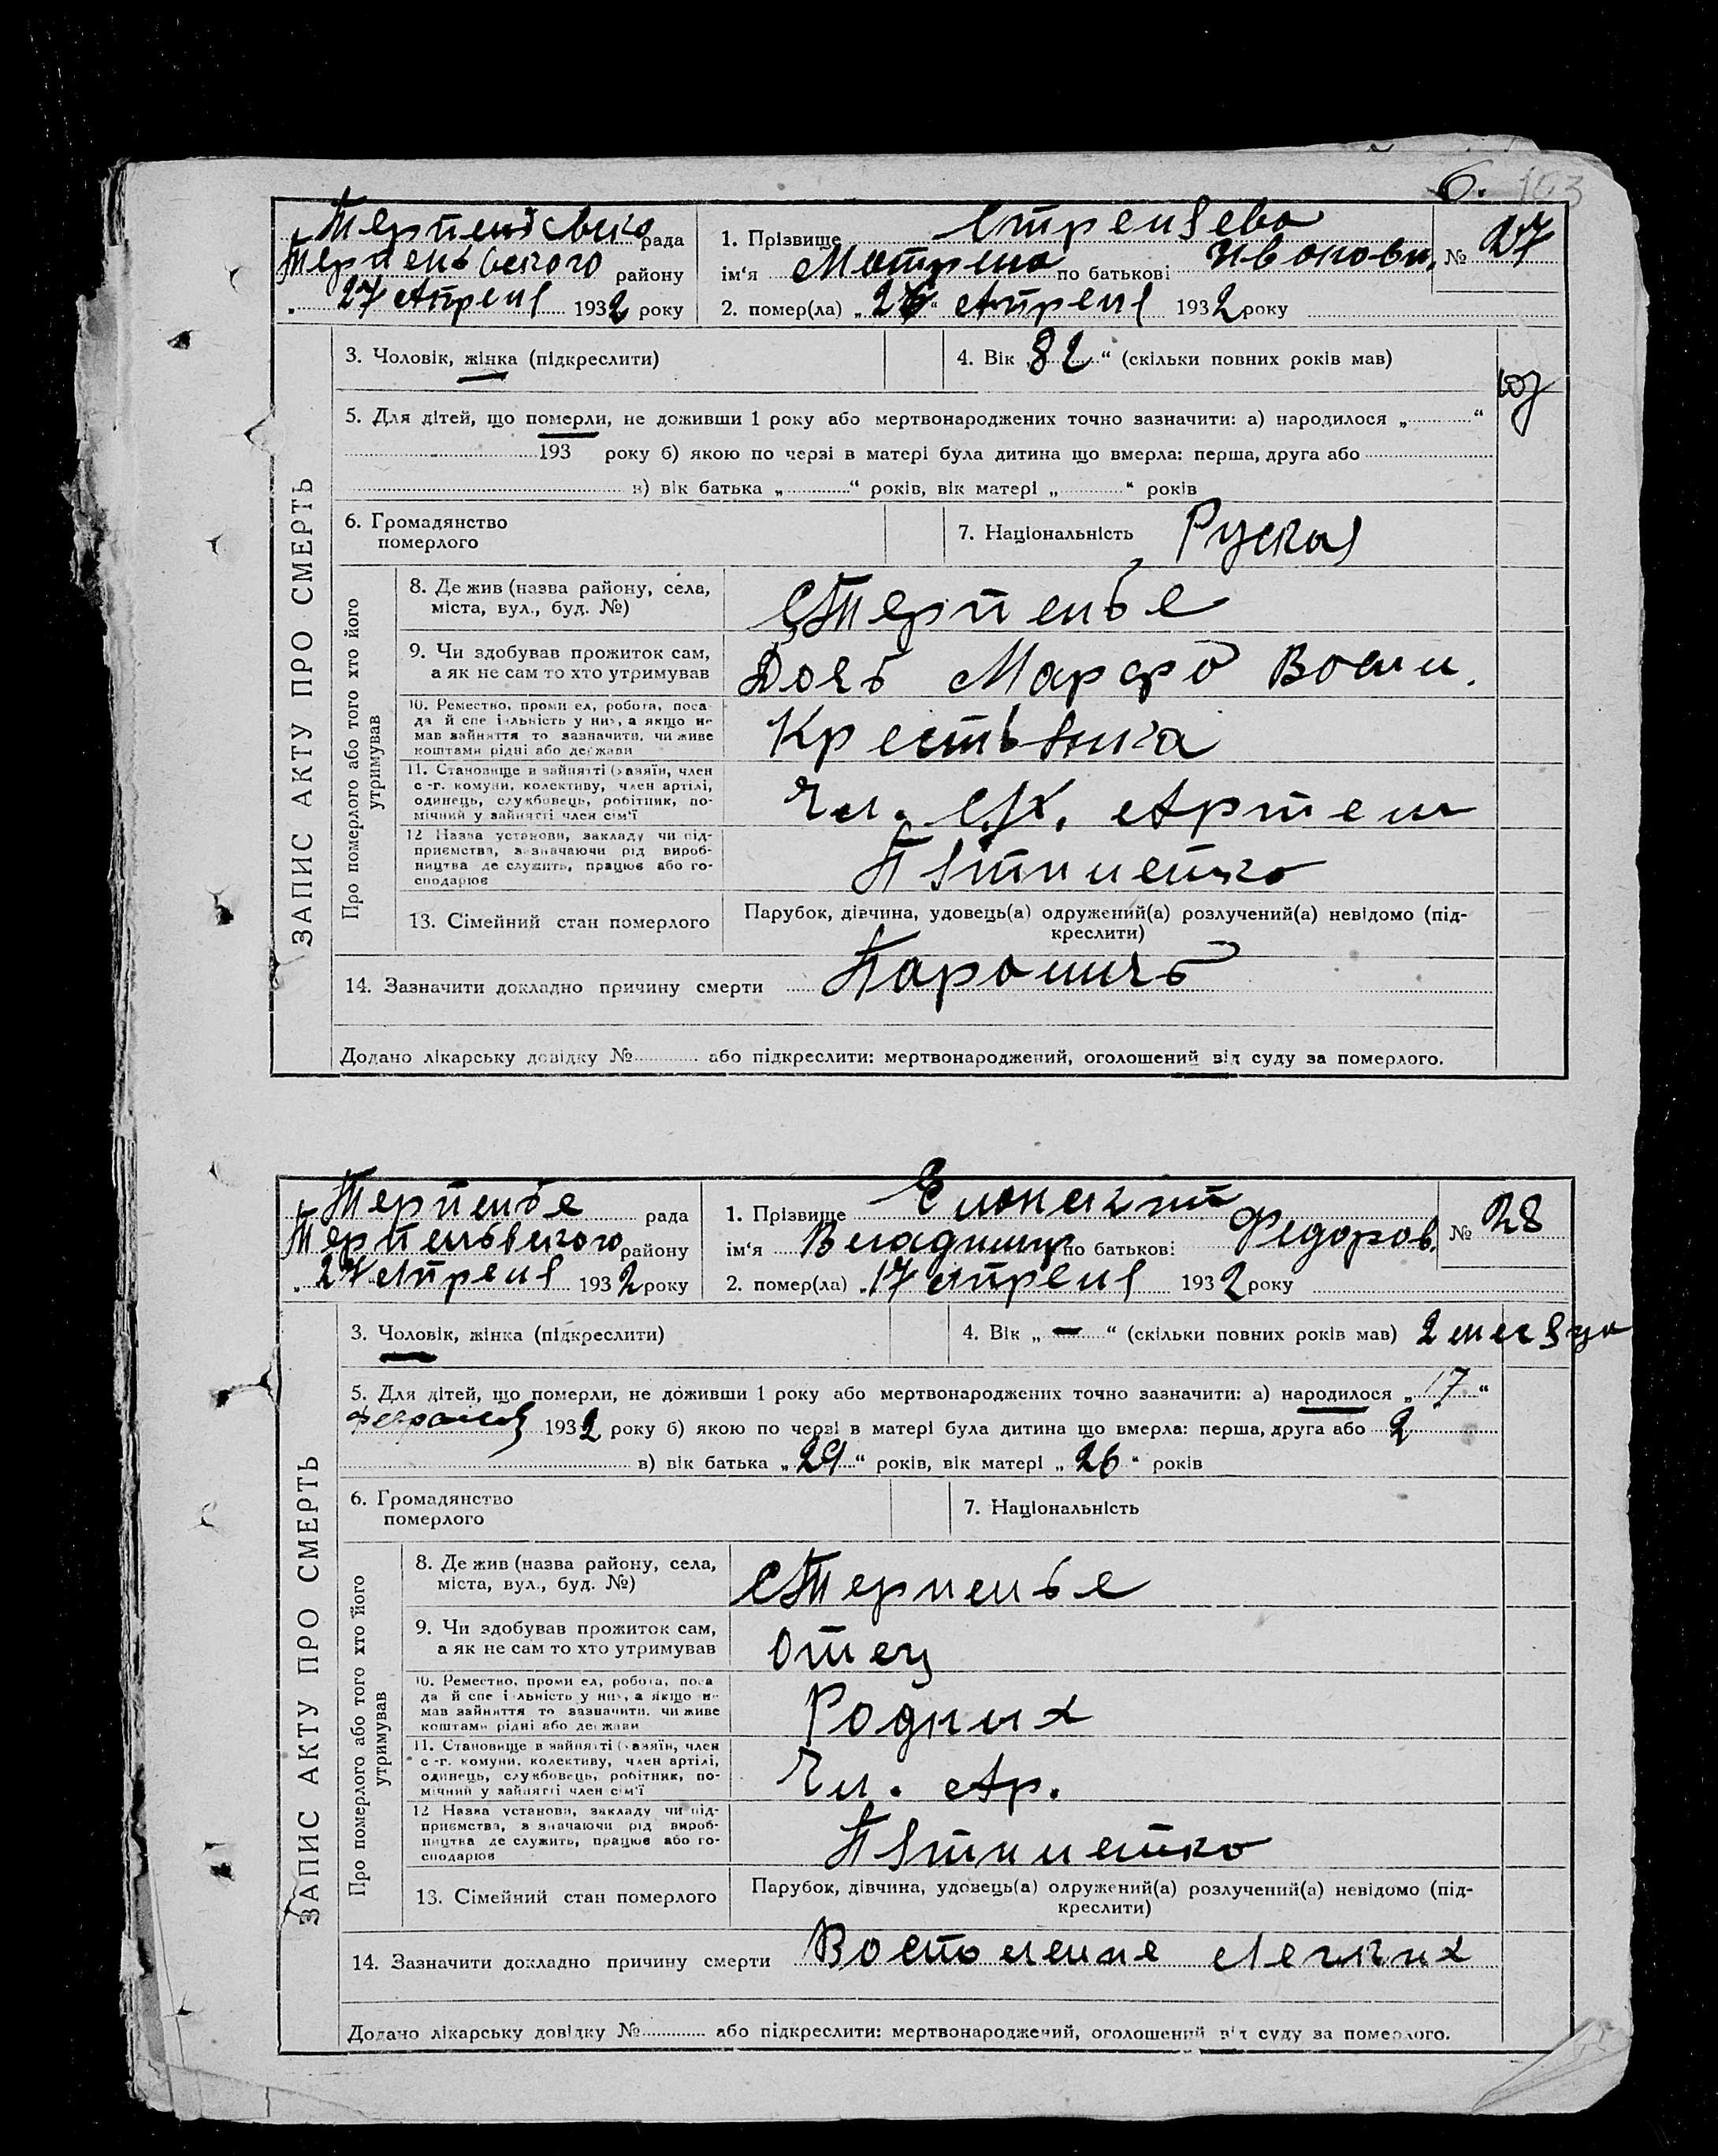 6. 103
Терпенівська рада
Терпеньвского району
„ 27 Апреля 1932 року
1. Прізвище
ім‘я Матрена по батькові Ивановн.
№ 27
2. помер(ла) „26“ Апреля 1932 року
3. Чоловік, жінка (підкреслити)
4. Вік 82 “ (скільки повних років мав)
5. Для дітей, що померли, не доживши 1 року або мертвонароджених точно зазначити: а) народилося „ “
193 року б) якою по черзі в матері була дитина що вмерла: перша, друга або
в) вік батька „ “ років, вік матері „ “ років
6. Громадянство
померлого
7. Національність Руская
ЗАПИС АКТУ ПРО СМЕРТЬ
Про померлого або того хто його
утримував
8. Де жив (назва району, села,
міста, вул., буд. №)
с Терпенье
9. Чи здобував прожиток сам,
а як не сам то хто утримував
Дочь Марфа
10. Ремество, проми ел, робота, поса
да й спе і льність у ни›, а якщо не
мав зайняття то зазначити, чи живе
коштами рідні або держави
Крестьянка
11. Становище в зайнятті (хазяїн, член
с -г. комуни, колективу, член артілі,
одинець, службовець, робітник, по-
мічний у зайнятті член сім‘ї
Чл. С.Х. Артели
12 Назва установи, закладу чи під-
приємства, зазначаючи рід вироб-
ництва де служить, працює або го-
сподарює
Пятилетка
13. Сімейний стан померлого
Парубок, дівчина, удовець(а) одружений(а) розлучений(а) невідомо (під-
креслити)
14. Зазначити докладно причину смерти Параличь
Додано лікарську довідку № або підкреслити: мертвонароджений, оголошений від суду за померлого.
Терпенье рада
Терпеньвского району
„ 27 Апреля 1932 року
1. Прізвище
ім‘я Владимир по батькові Федоров.
№ 28
2. помер(ла) „17 апреля 1932 року
3. Чоловік, жінка (підкреслити)
4. Вік „ — “ (скільки повних років мав) 2 месяца
5. Для дітей, що померли, не доживши 1 року або мертвонароджених точно зазначити: а) народилося „17“
февраля 1932 року б) якою по черзі в матері була дитина що вмерла: перша, друга або 2
в) вік батька „29“ років, вік матері „26“ років
6. Громадянство
померлого
7. Національність
ЗАПИС АКТУ ПРО СМЕРТЬ
Про померлого або того хто його
утримував
8. Де жив (назва району, села,
міста, вул., буд. №)
с Терпенье
9. Чи здобував прожиток сам,
а як не сам то хто утримував
отец
10. Ремество, проми ел, робота, поса
да й спе і льність у ни›, а якщо не
мав зайняття то зазначити, чи живе
коштами рідні або держави
Родных
11. Становище в зайнятті (хазяїн, член
с -г. комуни, колективу, член артілі,
одинець, службовець, робітник, по-
мічний у зайнятті член сім‘ї
Чл. Ар.
12 Назва установи, закладу чи під-
приємства, зазначаючи рід вироб-
ництва де служить, працює або го-
сподарює
Пятилетка
13. Сімейний стан померлого
Парубок, дівчина, удовець(а) одружений(а) розлучений(а) невідомо (під-
креслити)
14. Зазначити докладно причину смерти Восполение Легких
Додано лікарську довідку № або підкреслити: мертвонароджений, оголошений від суду за померлого.